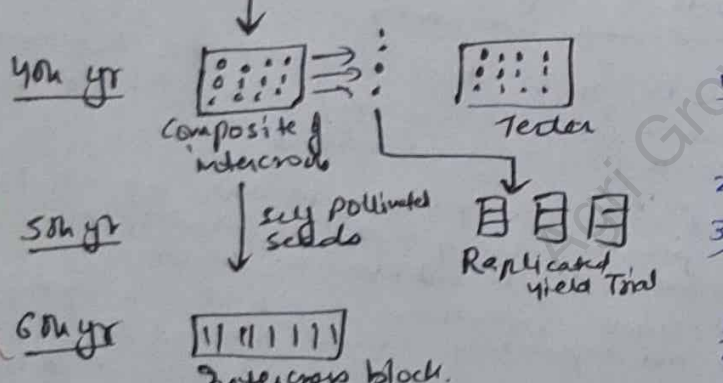 4th yr
Composite of
intercross
Tester
5th yr
self pollinated
seeds
Raplicated
yield Trial
6th yr
Intercross block.
Agri Gro
2
3